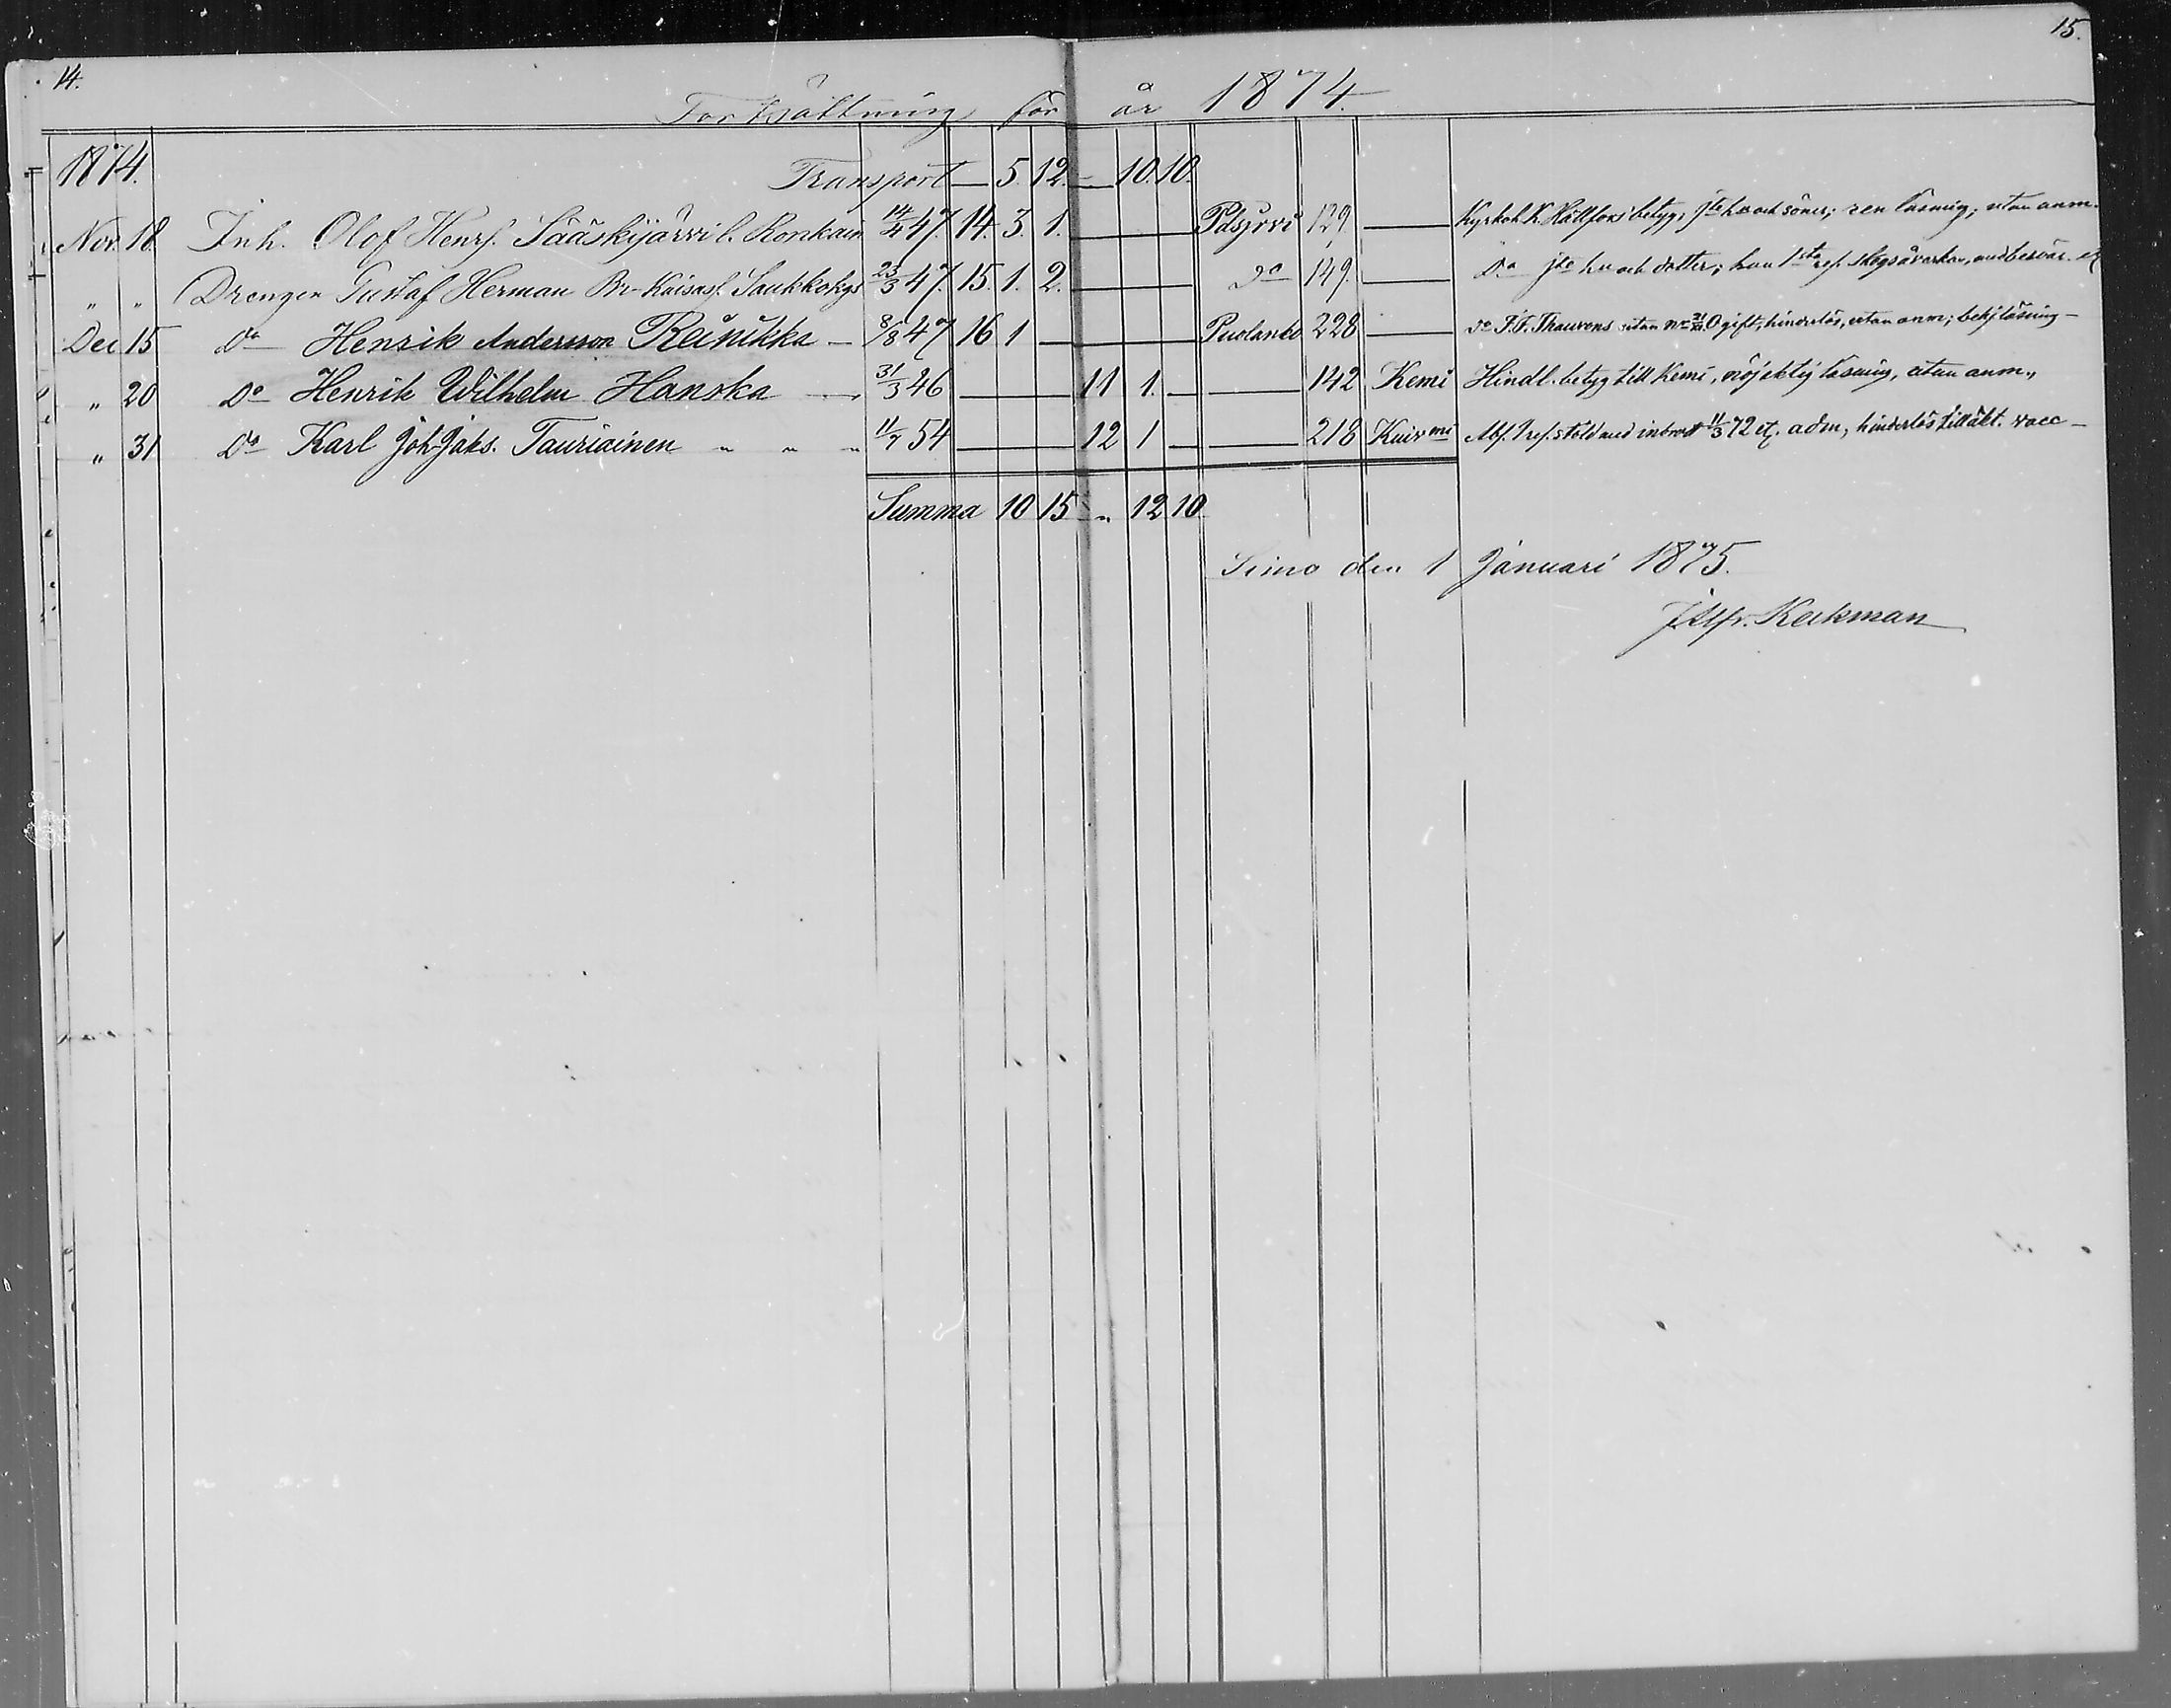 14.
15.
Fortsättning för år 1874.
1874. Transport — 5. 12. — 10. 10.
Nov. 18 Inh. Olof Henrs. Sääskijärvi l. Ronkain 14/4 47. 14. 3. 1. — Pdsjrvi 129. — Kyrkoh. K. Hällfors' betyg, jte hu och söner; ren läsning, utan anm.
" " Drengen Gustaf Herman Saukkokgs 23/3 47. 15. 1. 2. — do 149. — Do jte hu och dotter; han 1sta res.
Dec 15 Do Henrik Andersson Räinikka — 8/8 47 16 1 — Puolanko 228 — do utan gift, hinderlös, utan anm;
" 20 Do Henrik Wilhelm Hanska — 31/3 46 — 11 1. — 142 Kemi Hindl. betyg till Kemi, nöjaktig läsning, utan anm.,
" 31 Do Karl Joh. Jaks. Tauriainen " " " 11/7 54 — 12 1 — 218 Kuivmi stöld med inbrott 11/3 72 adm, hinderlös vacc —
Summa 10 15 " 12 10
Simo den 1 Januari 1875.
J Alfr. Keckman